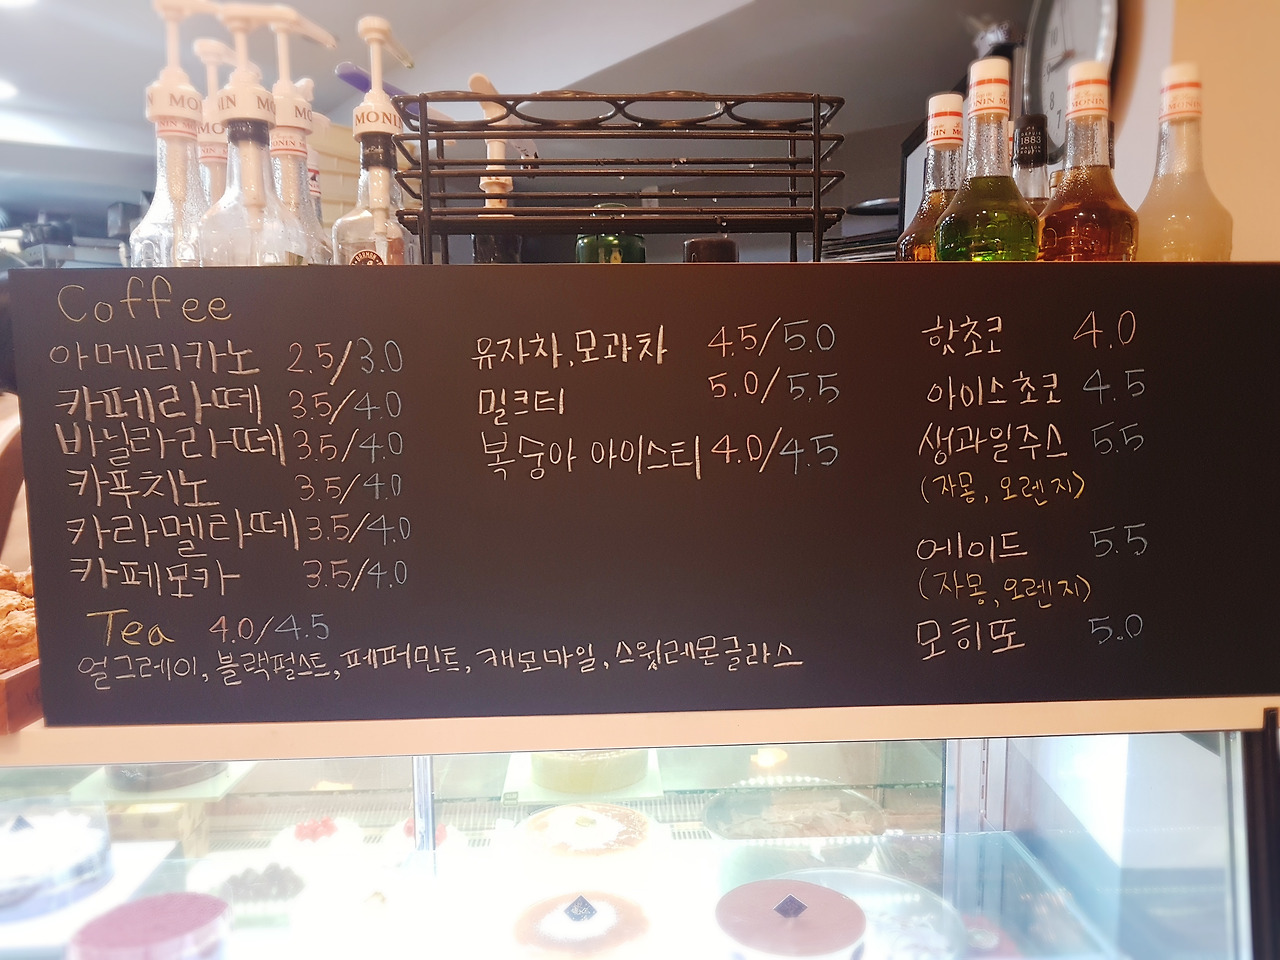 MONIN
MONIN
MONIN
MONIN
MONIN
1883
Coffee
아메리카노 2.5/3.0
카페라떼 3.5/4.0
바닐라라떼 3.5/4.0
카푸치노 3.5/4.0
카라멜라떼 3.5/4.0
카페모카 3.5/4.0
Tea 4.0/4.5
얼그레이, 블랙펄스트, 페퍼민트, 캐모마일, 스윗레몬글라스
유자차, 모과차 4.5/5.0
밀크티 5.0/5.5
복숭아 아이스티 4.0/4.5
핫초코 4.0
아이스초코 4.5
생과일주스 5.5
(자몽, 오렌지)
에이드 5.5
(자몽, 오렌지)
모히또 5.0